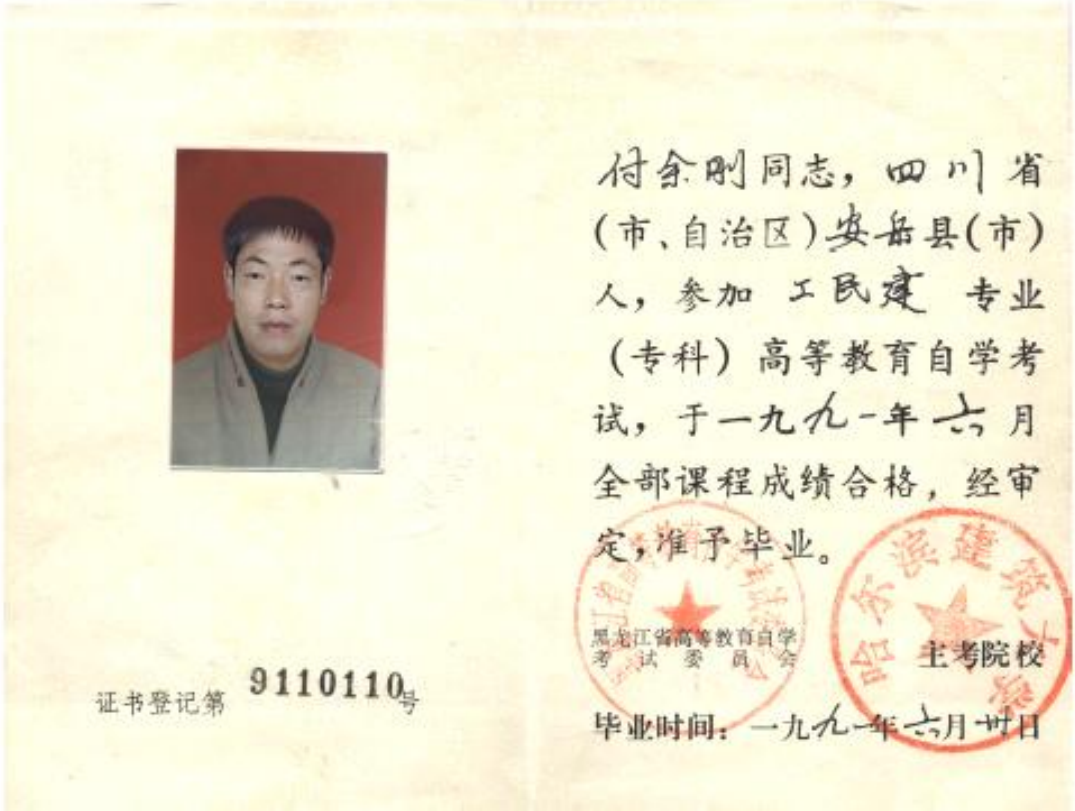 证书登记第 9110110 号
付余刚同志，四川省
(市、自治区)安岳县(市)
人，参加 工民建 专业
(专科)高等教育自学考
试，于一九九一年六月
全部课程成绩合格，经审
定，准予毕业。
黑龙江省高等教育自学
考试委员会
主考院校
哈尔滨建筑大学
毕业时间：一九九一年六月卅日